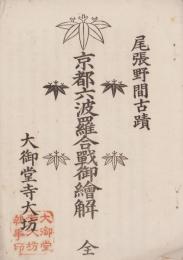 尾張野間古蹟
京都六波羅合戰御繪解 全
大御堂寺大坊
大御堂
寺大坊
執事印